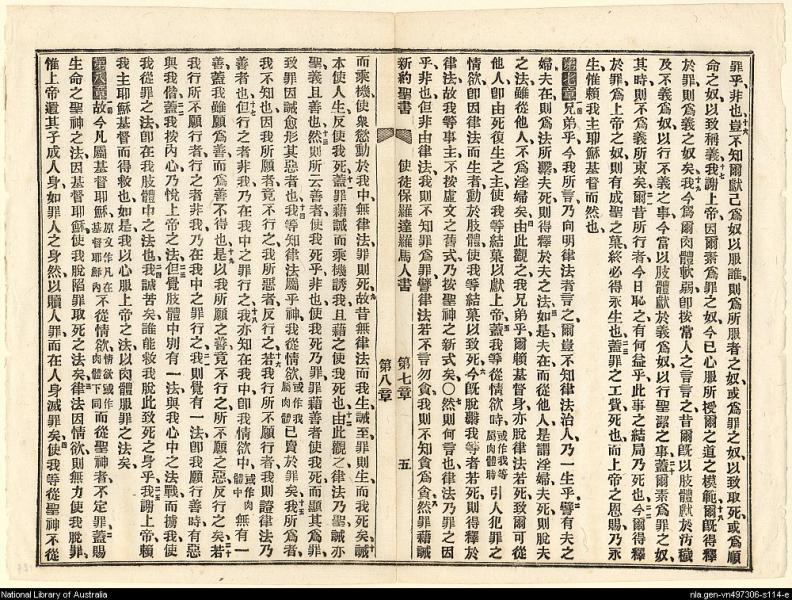 罪乎、非也、豈不知爾獻己爲奴以服誰、則爲所服者之奴、或爲罪之奴以致取死、或爲順
命之奴以致稱義、我謝上帝、因爾素爲罪之奴、今已心服所授爾之道之模範、爾旣得釋
於罪、則爲義之奴矣、我今爲爾肉體輭弱、卽按常人之言言之、昔爾旣以肢體獻於污穢
及不義爲奴、以行不義之事、今當以肢體獻於義爲奴、以行聖潔之事、蓋爾素爲罪之奴
其時則不爲義所束矣、爾昔所行者、今日恥之、有何益乎、此事之結局乃死也、今爾得釋
於罪、爲上帝之奴、則有成聖之菓、終必得永生也、蓋罪之工費死也、而上帝之恩賜乃永
生、惟賴我主耶穌基督而然也、
第七章 兄弟乎、今我所言、乃向明律法者言之、爾豈不知律法治人、乃一生乎、譬有夫之
婦、夫在則爲法所繫、夫死則得釋於夫之法、如是夫在而從他人、是謂淫婦、夫死則脫夫
之法、雖從他人、不爲淫婦矣、由此觀之、我兄弟乎、爾賴基督身亦脫律法若死、致爾可從
他人、卽由死復生之主、使我等結菓以獻上帝、蓋我等從情欲時、或作我等屬肉體時引人犯罪之
情欲、卽因律法而生者、動於肢體、使我等結菓以致死、今旣脫繫我等者若死、則得釋於
律法、故我等事主、不按虛文之舊式、乃按聖神之新式矣、〇然則何言也、律法乃罪之因
乎、非也、但非由律法、我則不知罪爲罪、譬律法若不言勿貪、我則不知貪爲貪、然罪藉誡
新約聖書 使徒保羅達羅馬人書 第七章 第八章 五
而乘機、使衆慾動於我中、無律法罪則死、故昔無律法而我生、誡至罪則生而我死矣、誡
本使人生、反使我死、蓋罪藉誡而乘機誘我、且藉之使我死也、由此觀之、律法乃聖、誡亦
聖、義且善也、然則所云善者使我死乎、非也、使我死乃罪、罪藉善者使我死、而顯其爲罪、
致罪因誡愈形其惡者也、我等知律法屬乎神、我從情欲或作我屬肉體已賣於罪矣、我所爲者、
我不知也、因我所願者竟不行之、我所惡者反行之、若我行所不願行者、我則證律法乃
善者也、但行之者非我、乃在我中之罪行之、我亦知在我中、卽我情欲中、或作肉體中無有一
善、蓋我雖願爲善、而爲善不得也、是以我所願之善竟不行之、所不願之惡反行之矣、若
我行所不願行者、行之者非我、乃在我中之罪行之、我則覺有一法、卽我願行善時、有惡
與我偕、蓋我按內心乃悅上帝之法、但覺肢體中別有一法、與我心中之法戰而擄我、使
我從罪之法、卽在我肢體中之法也、我誠苦矣、誰能救我脫此致死之身乎、我謝上帝、賴
我主耶穌基督而得救也、如是我以心服上帝之法、以肉體服罪之法矣、
第八章 故今凡屬基督耶穌原文作凡在基督耶穌內不從情欲情欲或作肉體下同而從聖神者、不定罪、蓋賜
生命之聖神之法、因基督耶穌使我脫陷罪取死之法矣、律法因情欲則無力使我脫罪、
惟上帝遣其子成人身、如罪人之身然、以贖人罪、而在人身滅罪矣、使我等從聖神不從
National Library of Australia
nla.gen-vn497306-s114-e